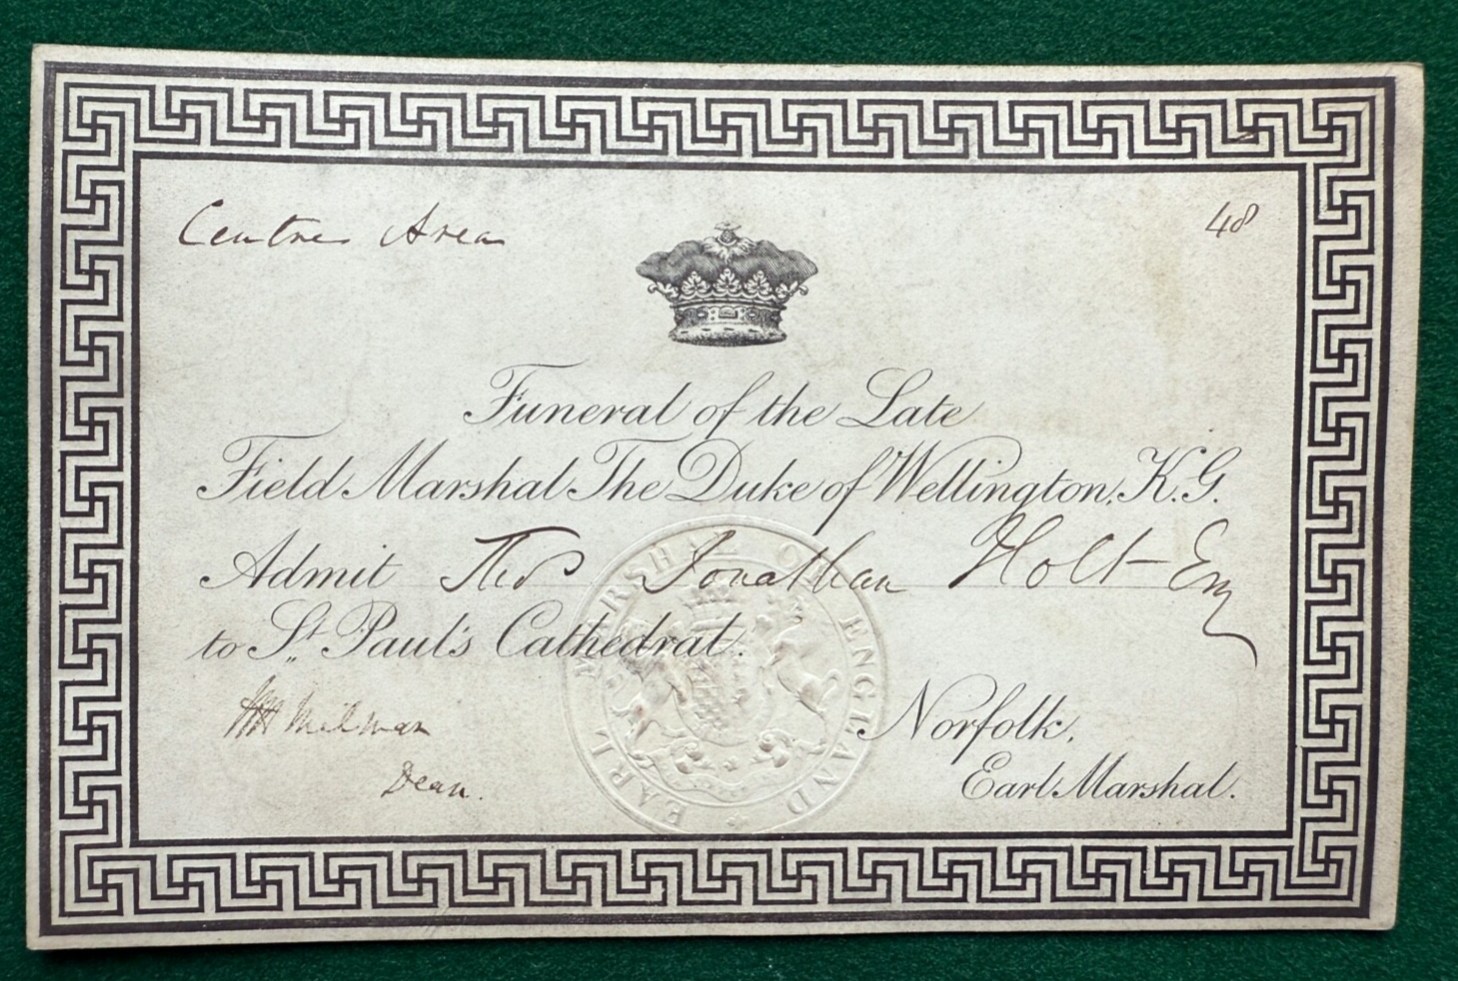 Centre Area
48
Funeral of the Late
Field Marshal The Duke of Wellington, K.G.
Admit Thos Jonathan Holt Esq
to St. Paul's Cathedral.
HH Milman
Dean.
Norfolk,
Earl Marshal.
EARL MARSHAL OF ENGLAND